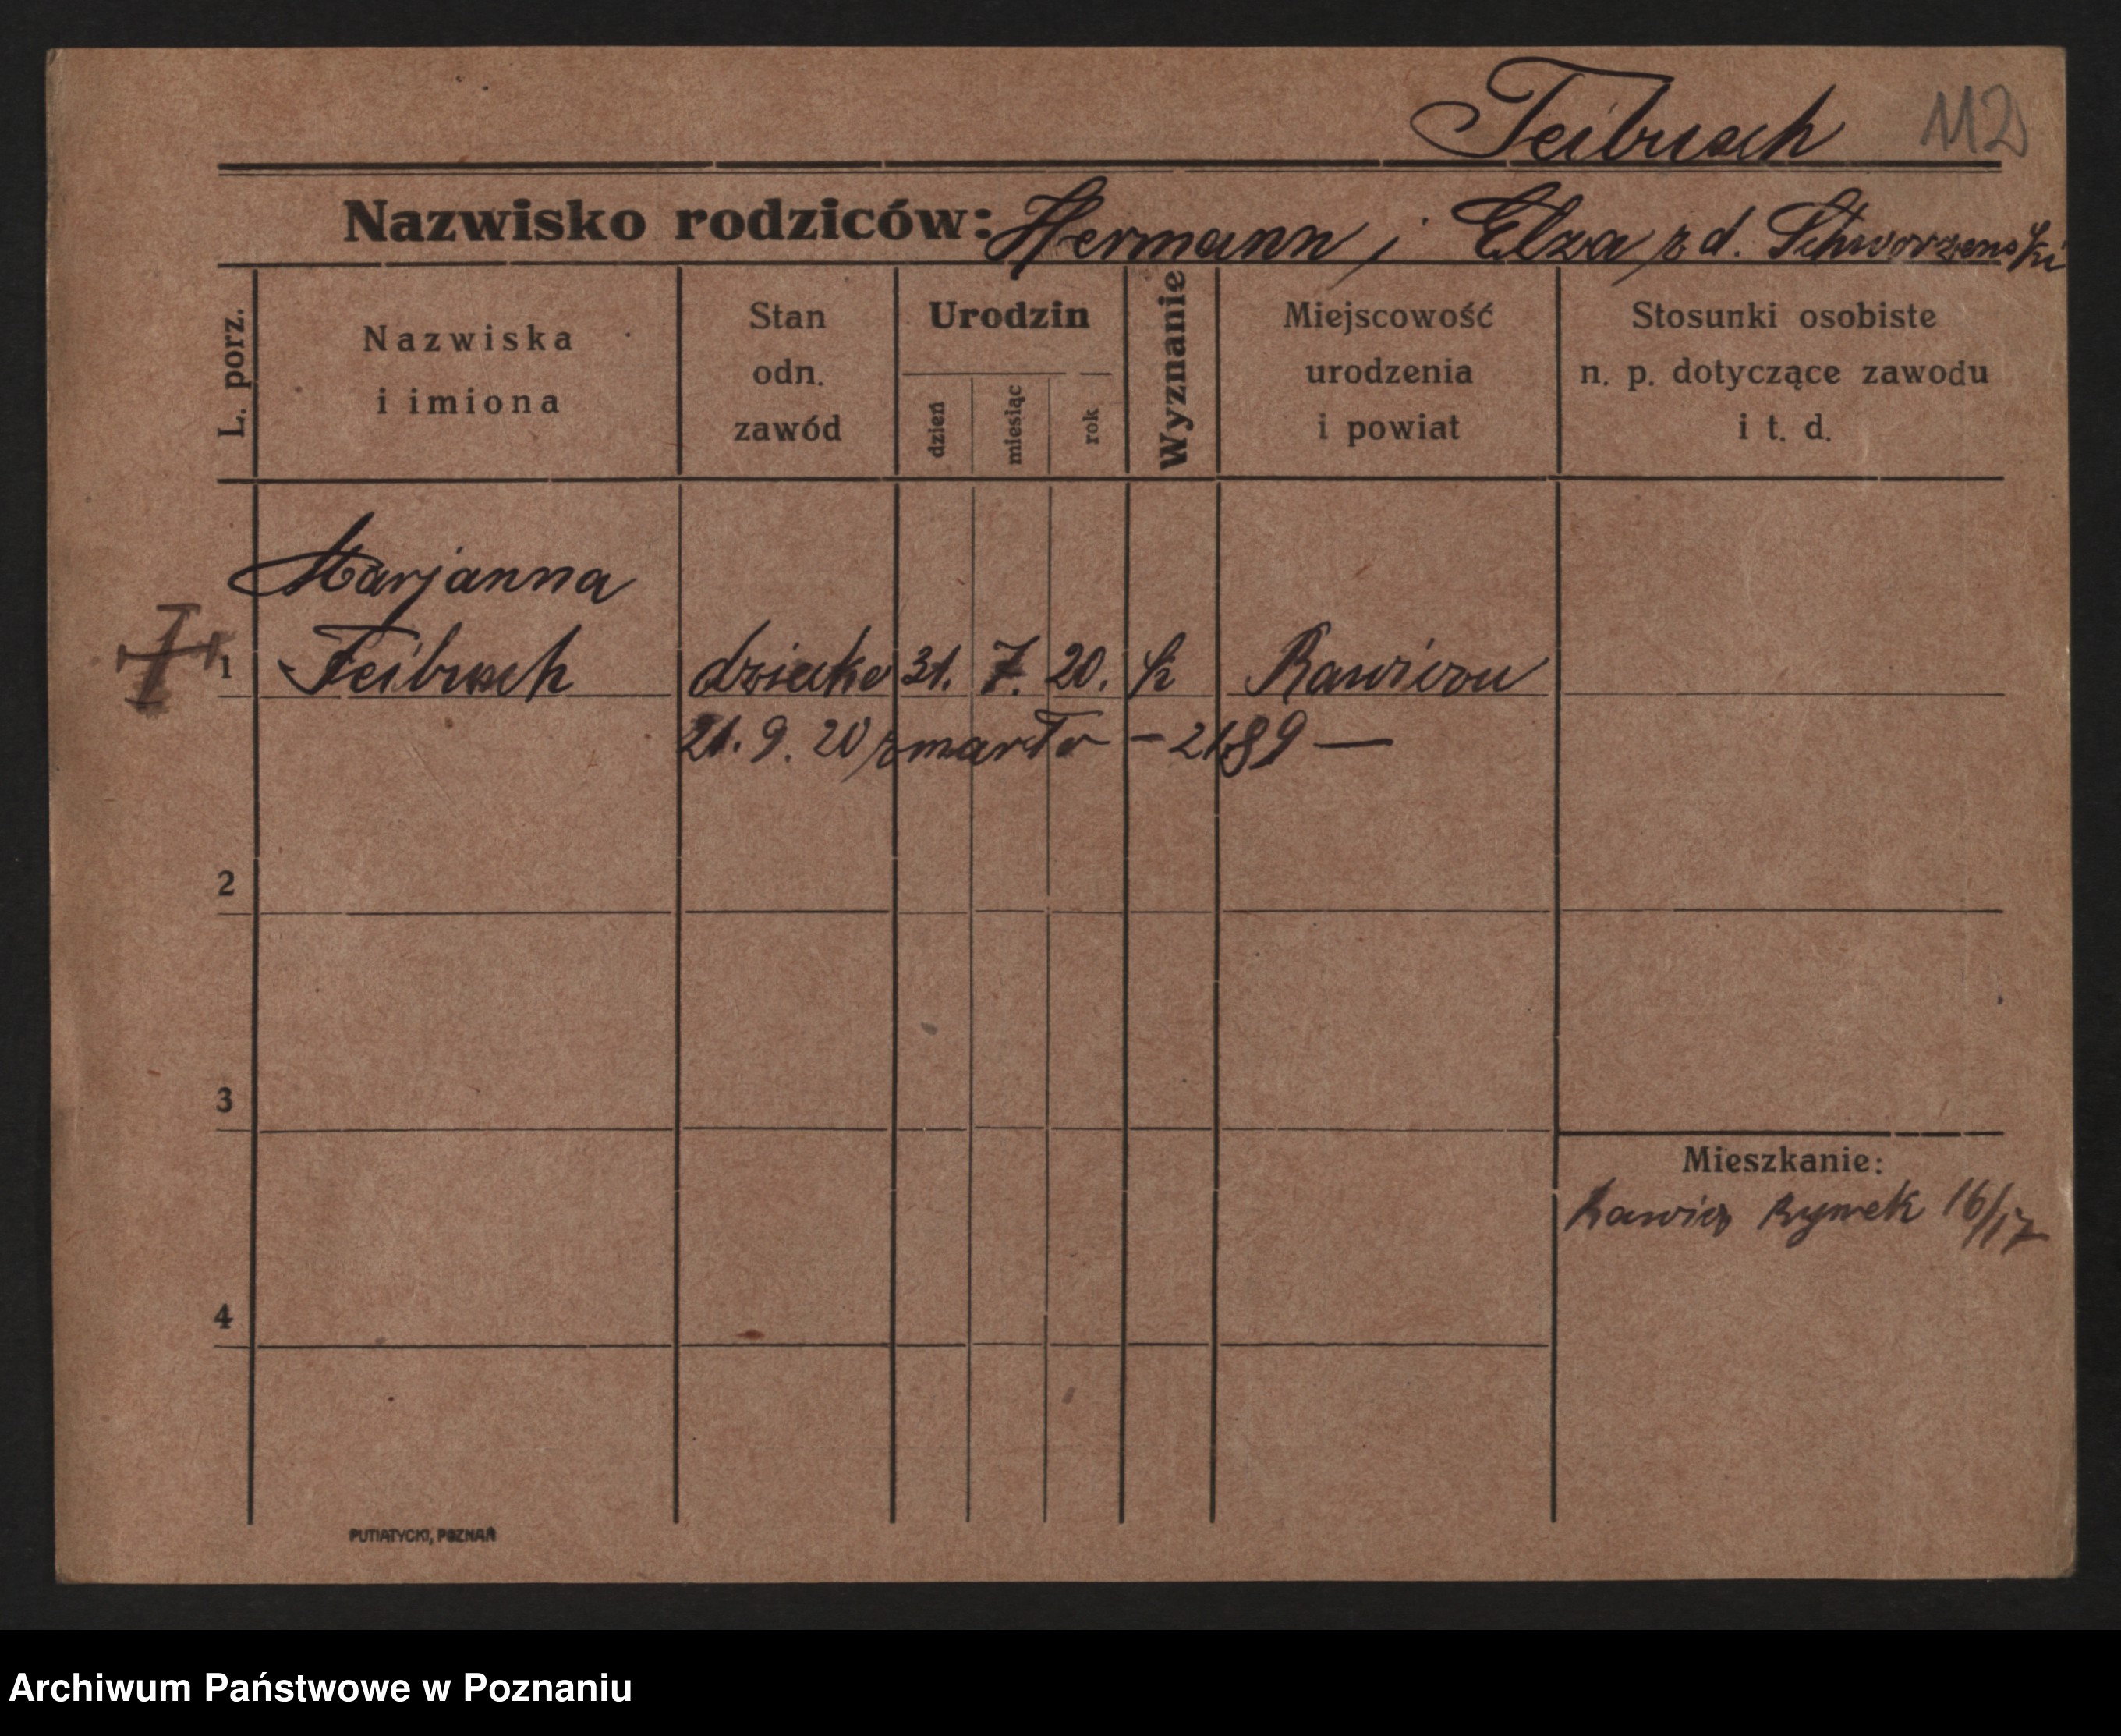 Feibusch 112
Nazwisko rodziców: Hermann i Elza z d. Schworzenski
L. porz.
Nazwiska
i imiona
Stan
odn.
zawód
Urodzin
dzień
miesiąc
rok
Wyznanie
Miejscowość
urodzenia
i powiat
Stosunki osobiste
n. p. dotyczące zawodu
i t. d.
Marjanna
1 Feibusch dziecko 31. 7. 20. Rawiczu
21. 9. 20 zmarło - 2189 -
2
3
Mieszkanie:
Rawicz Rynek 16/17
4
PUTIATYCKI, POZNAŃ
Archiwum Państwowe w Poznaniu